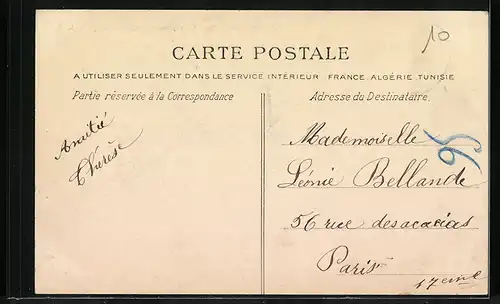 10
CARTE POSTALE
A UTILISER SEULEMENT DANS LE SERVICE INTÉRIEUR FRANCE, ALGÉRIE, TUNISIE
Partie réservée à la Correspondance
Adresse du Destinataire
Amitié
Thérèse
Mademoiselle
95
Léonie Bellande
56 rue des acacias
Paris
17eme